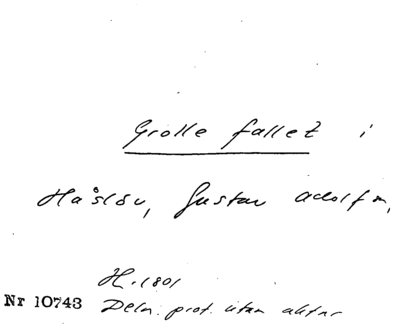 Grolle fallet i
Håslöv, Gustav Adolf
H. 1801
Nr 10743 Deln. prot. utan aktnr